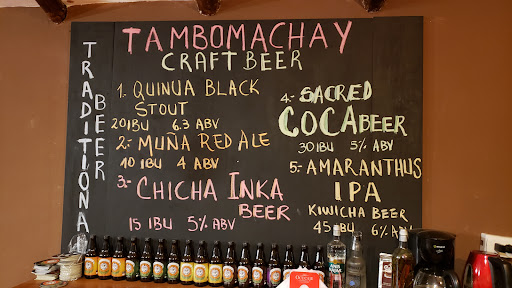 TAMBOMACHAY
CRAFT BEER
TRADITIONA
BEER
1.- QUINUA BLACK
STOUT
20IBU 6.3 ABV
2.- MUÑA RED ALE
10 IBU 4 ABV
3.- CHICHA INKA
BEER
15 IBU 5% ABV
4.- SACRED
COCA BEER
30 IBU 5% ABV
5.- AMARANTHUS
IPA
KIWICHA BEER
45 IBU 6% ABV